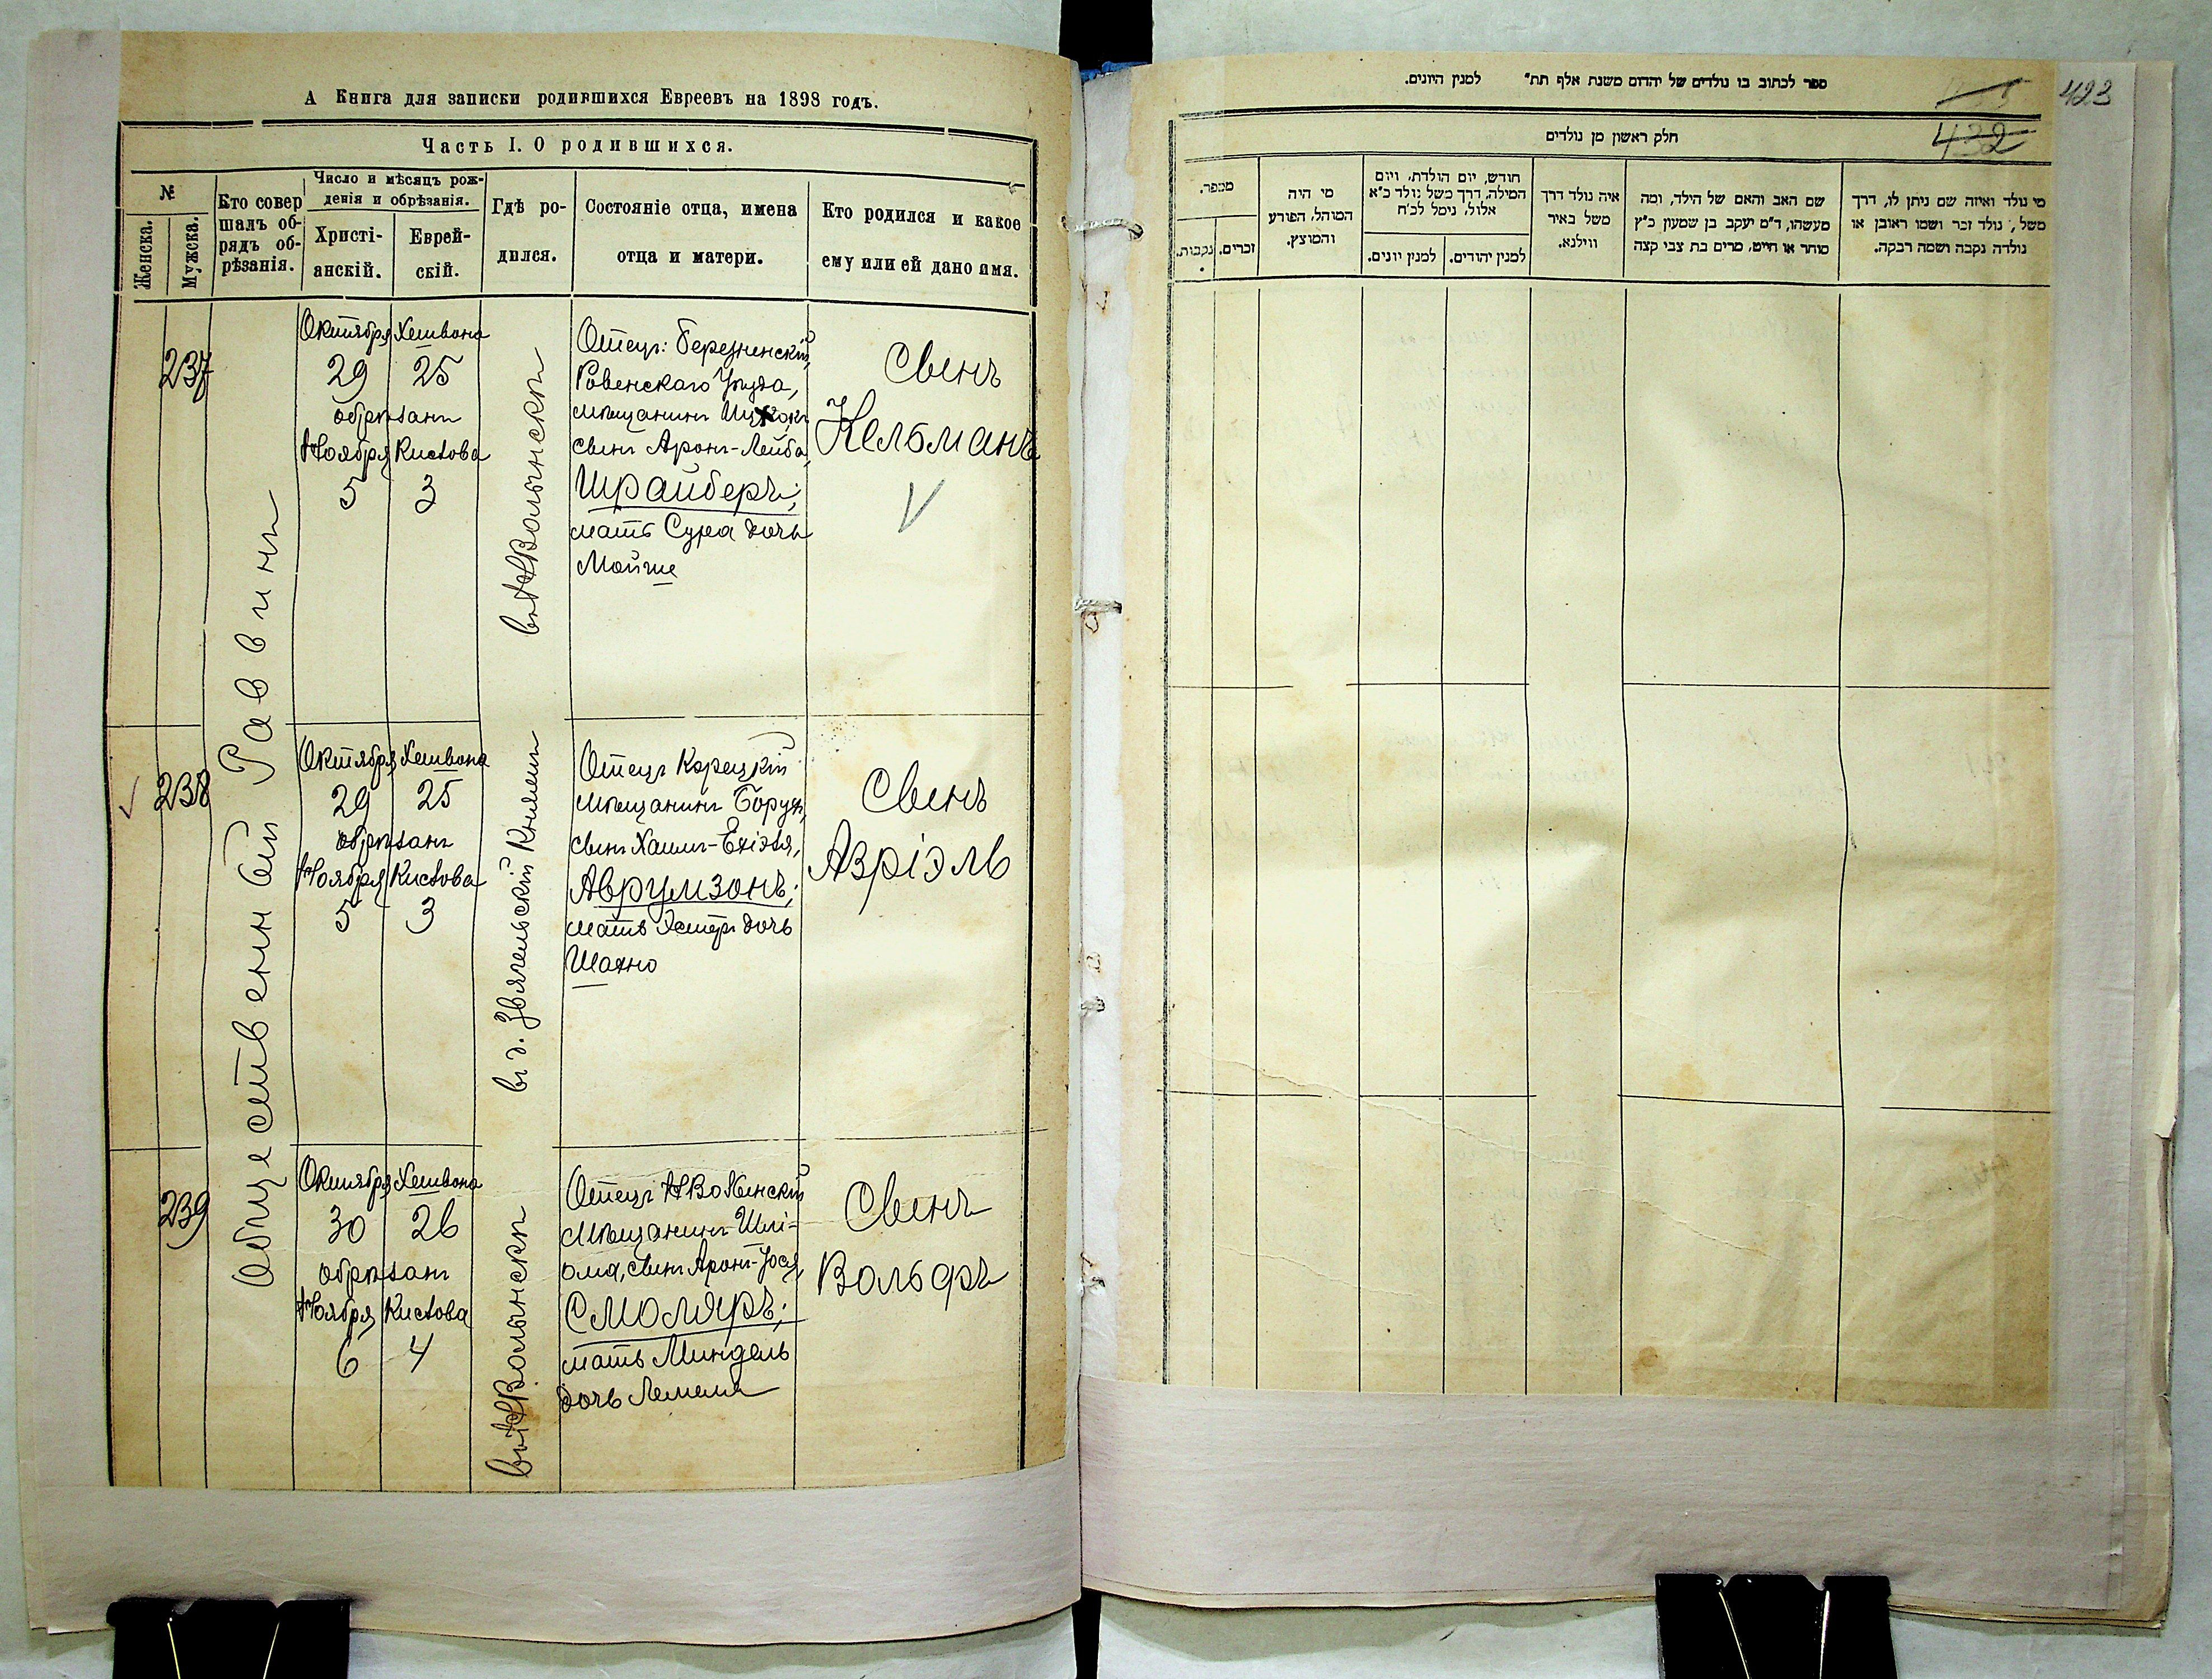 А Книга для записки родившихся Евреевъ на 1898 годъ.
Часть I. О родившихся.
№
Женска.
Мужска.
Кто совер
шалъ об-
рядъ об-
рѣзанія.
Число и мѣсяцъ рож-
денія и обрѣзанія.
Христі-
анскій.
Еврей-
скій.
Гдѣ ро-
дился.
Состояніе отца, имена
отца и матери.
Кто родился и какое
ему или ей дано имя.
Общественный Раввинъ
237
Октября Хешвона
29 25
обрѣзанъ
Ноября Кислова
5 3
въ НВолынскѣ
Отецъ: Березненскій,
Ровенскаго Уѣзда,
мѣщанинъ
сынъ Аронъ-Лейба,
Шрайберъ;
мать Сура дочь
Мойше
Сынъ
Кельманъ
238
Октября Хешвона
29 25
обрѣзанъ
Ноября Кислова
5 3
въ д. Звягельскій Княжинъ
Отецъ Корецкій
мѣщанинъ Борухъ,
сынъ Хаимъ-Ехіэля,
Аврумзонъ;
мать Эстеръ дочь
Шахно
Сынъ
Азріэль
239
Октября Хешвона
30 26
обрѣзанъ
Ноября Кислова
6 4
въ НВолынскѣ
Отецъ НВолынскій
мѣщанинъ Шлі-
ома, сынъ Аронъ-Юся,
Смоляръ;
мать Миндель
дочь Лемеля
Сынъ
Вольфъ
ספר לכתוב בו נולדים של יהדום משנת אלף תת״ למנין היונים.
423
432
חלק ראשון מן נולדים
מי נולד ואיזה שם ניתן לו, דרך
משל, נולד זכר ושמו ראובן או
נולדה נקבה ושמה רבקה.
שם האב והאם של הילד, ומה
מעשהו, ד״מ יעקב בן שמעון כ״ץ
סוחר או חייט, מרים בת צבי קצה
איה נולד דרך
משל באיר
ווילנא.
חודש, יום הולדת, ויום
המילה, דרך משל נולד כ״א
אלול, נימל לכ״ח
למנין יהודים.
למנין יונים.
מי היה
המוהל, הפורע
והמוצץ.
מספר.
זכרים.
נקבות.